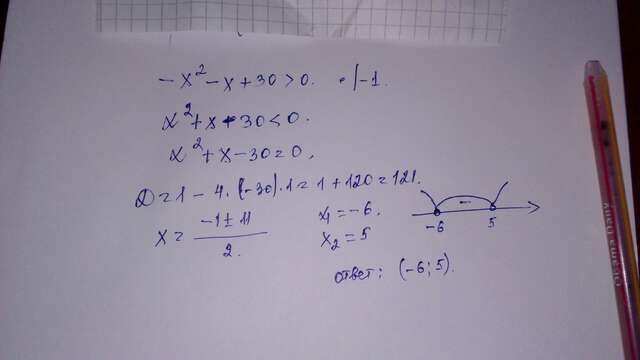 -x² - x + 30 > 0. · |-1.
x² + x - 30 < 0.
x² + x - 30 = 0,
D = 1 - 4 · (-30) · 1 = 1 + 120 = 121.
x = (-1 ± 11) / 2.
x₁ = -6.
x₂ = 5
- 
-6 5
ответ: (-6; 5).